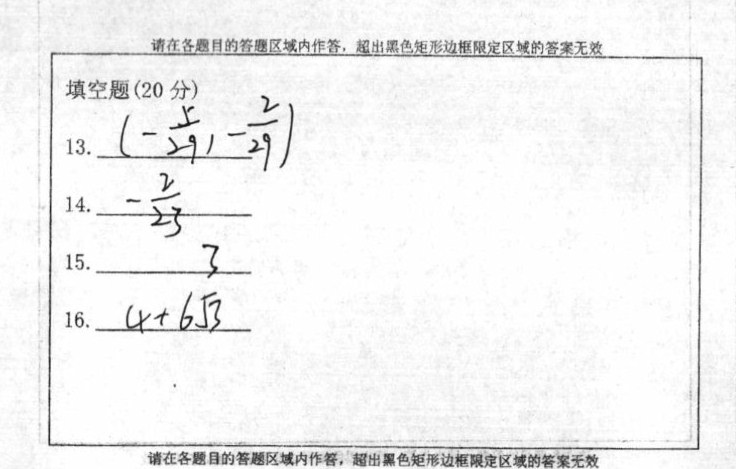 请在各题目的答题区域内作答，超出黑色矩形边框限定区域的答案无效
填空题(20 分)
13. (-5/29, -2/29)
14. -2/23
15. 3
16. 4+6√3
请在各题目的答题区域内作答，超出黑色矩形边框限定区域的答案无效